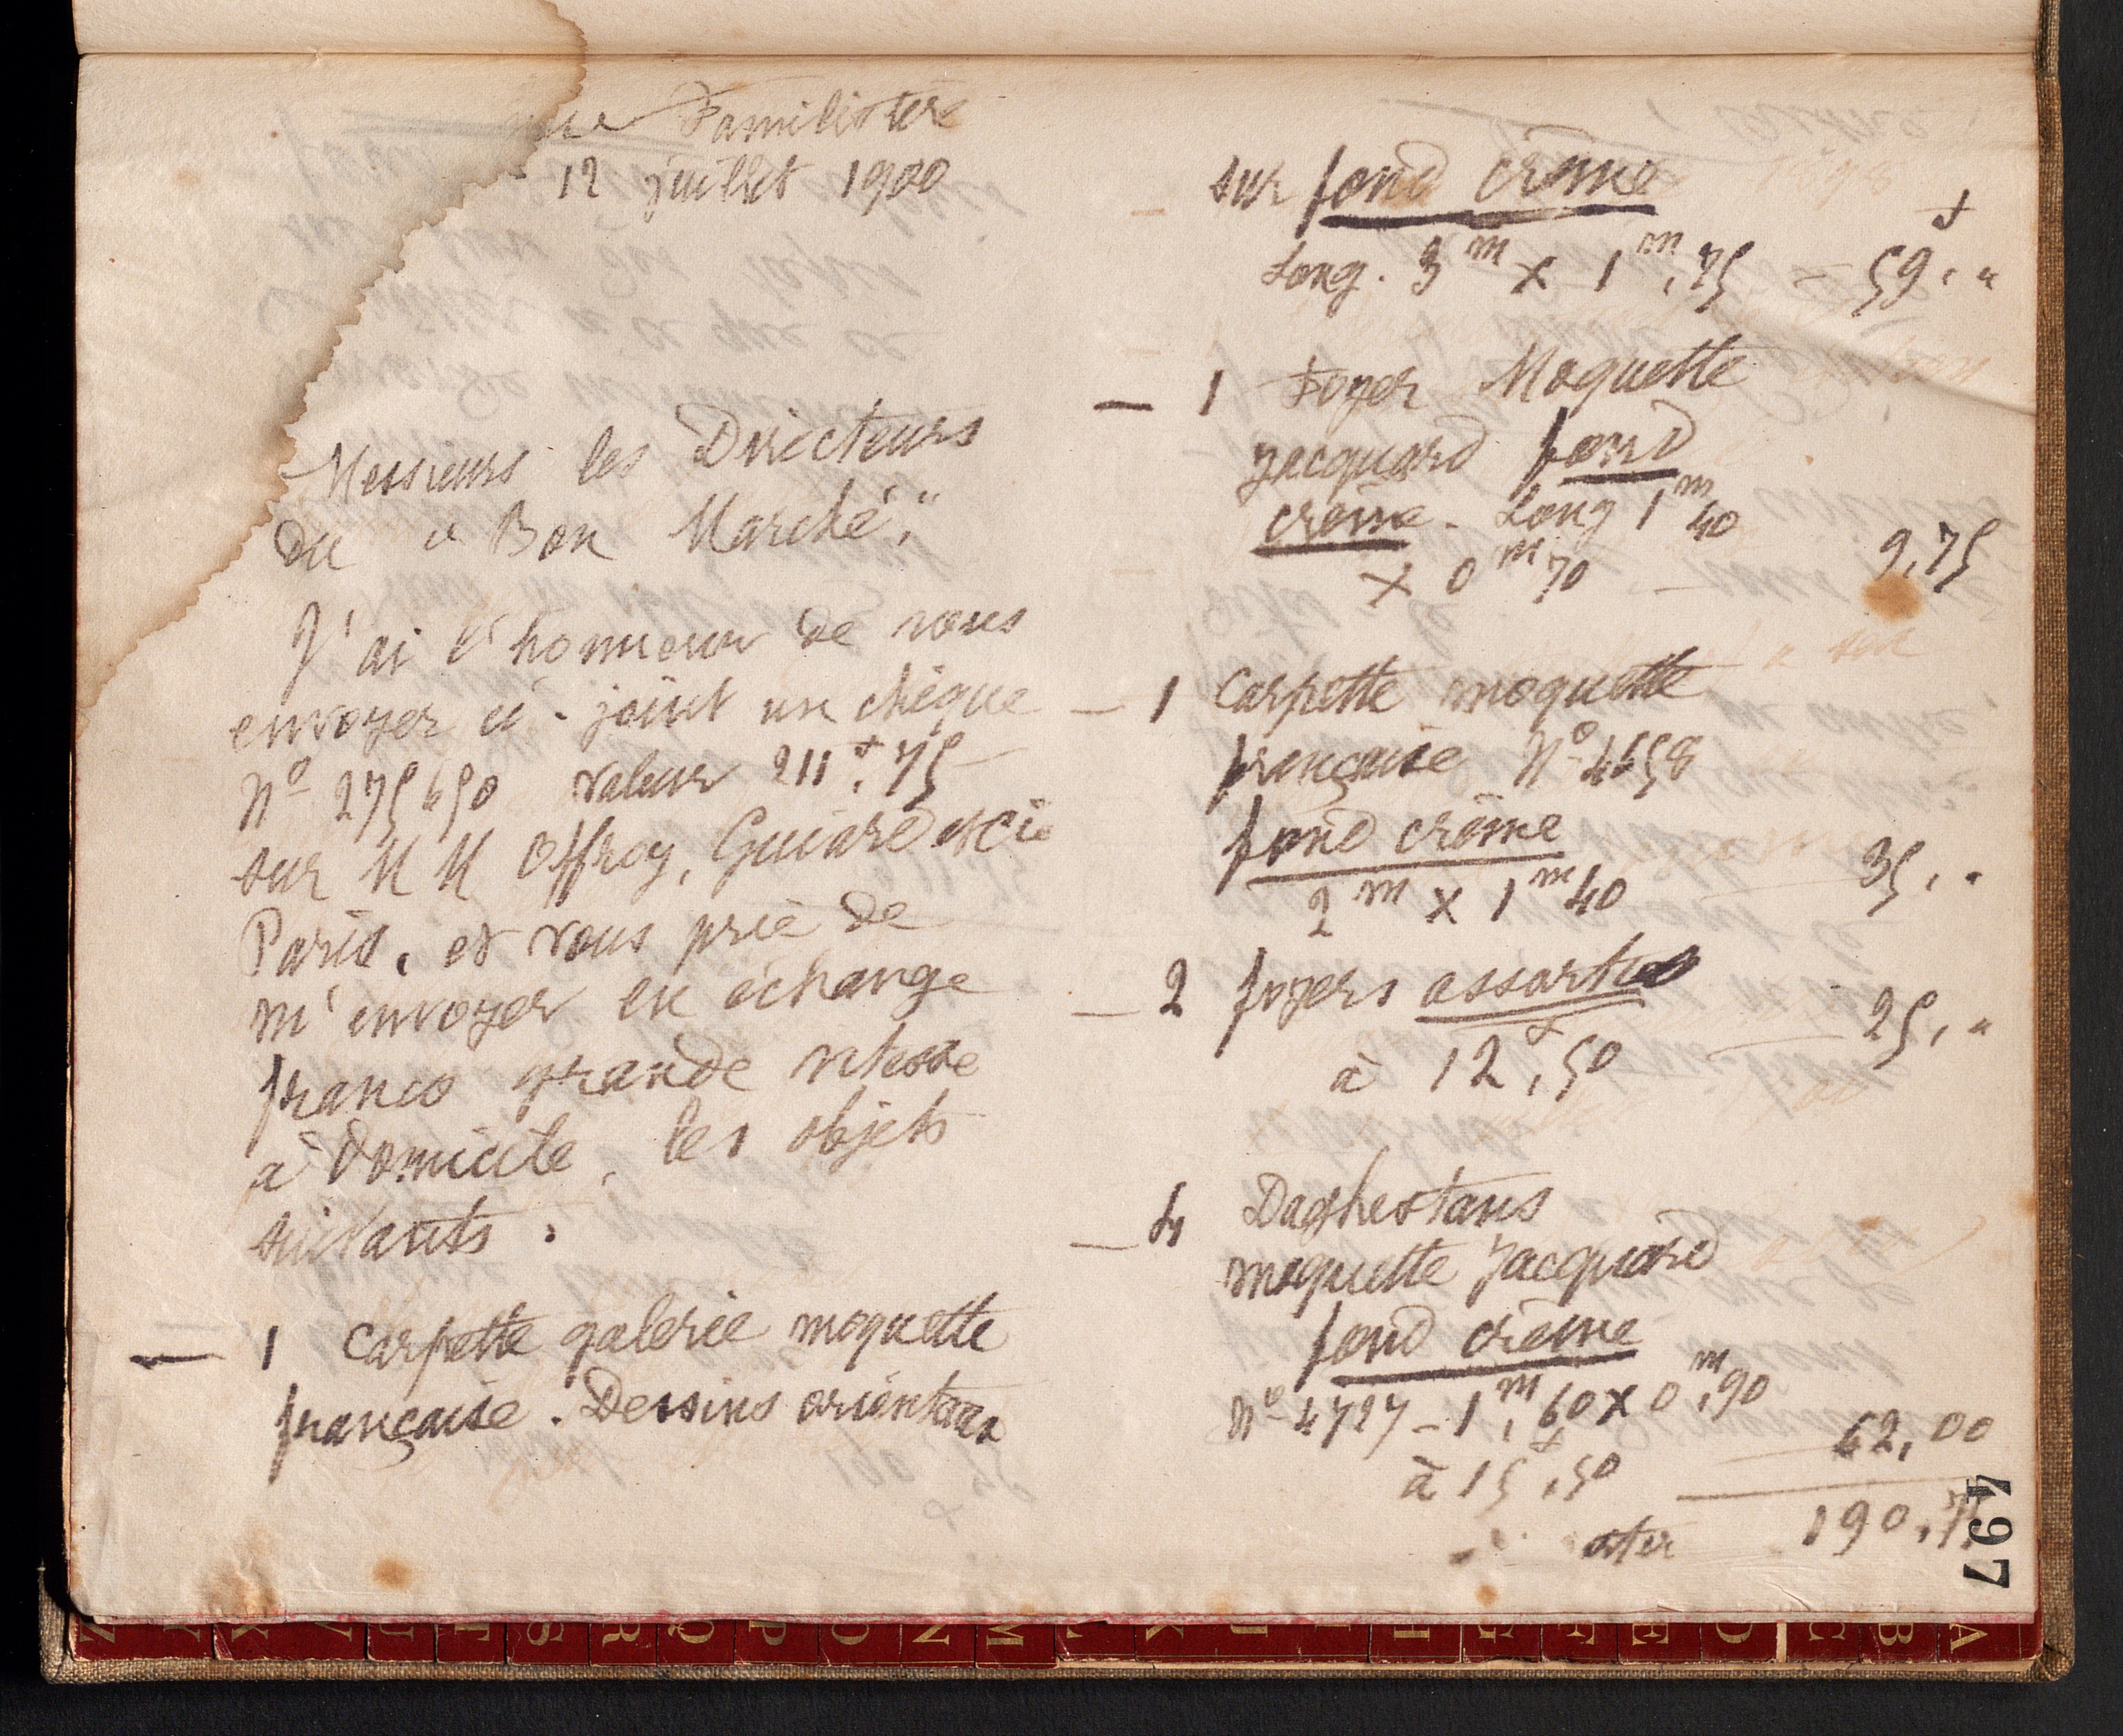 Familistère
12 juillet 1900
Messieurs les Directeurs
du " Bon Marché".
J'ai l'honneur de vous
envoyer ci-joint un chèque
N° 275650 valeur 211f,75
sur MM Offroy, Guiard et Cie
Paris, et vous prie de
m'envoyer en échange
franco grande vitesse
à domicile, les objets
suivants :
— 1 Carpette galerie moquette
française. Dessins orientaux
sur fond crème
Long. 3m x 1m,75 = 59f,"
— 1 Foyer Moquette
Jacquard fond
crème. Long 1m40
x 0m70 — 9,75
— 1 Carpette moquette
française N° 4658
fond crème
2m x 1m40 35,"
— 2 foyers assortis
à 12f,50 25,"
— 4 Daghestans
moquette Jacquard
fond crème
N° 4727 - 1m,60 x 0m,90
à 15f,50 62,00
190,75
497
Z Y X V U T S R Q P O N M L K J I H G F E D C B A